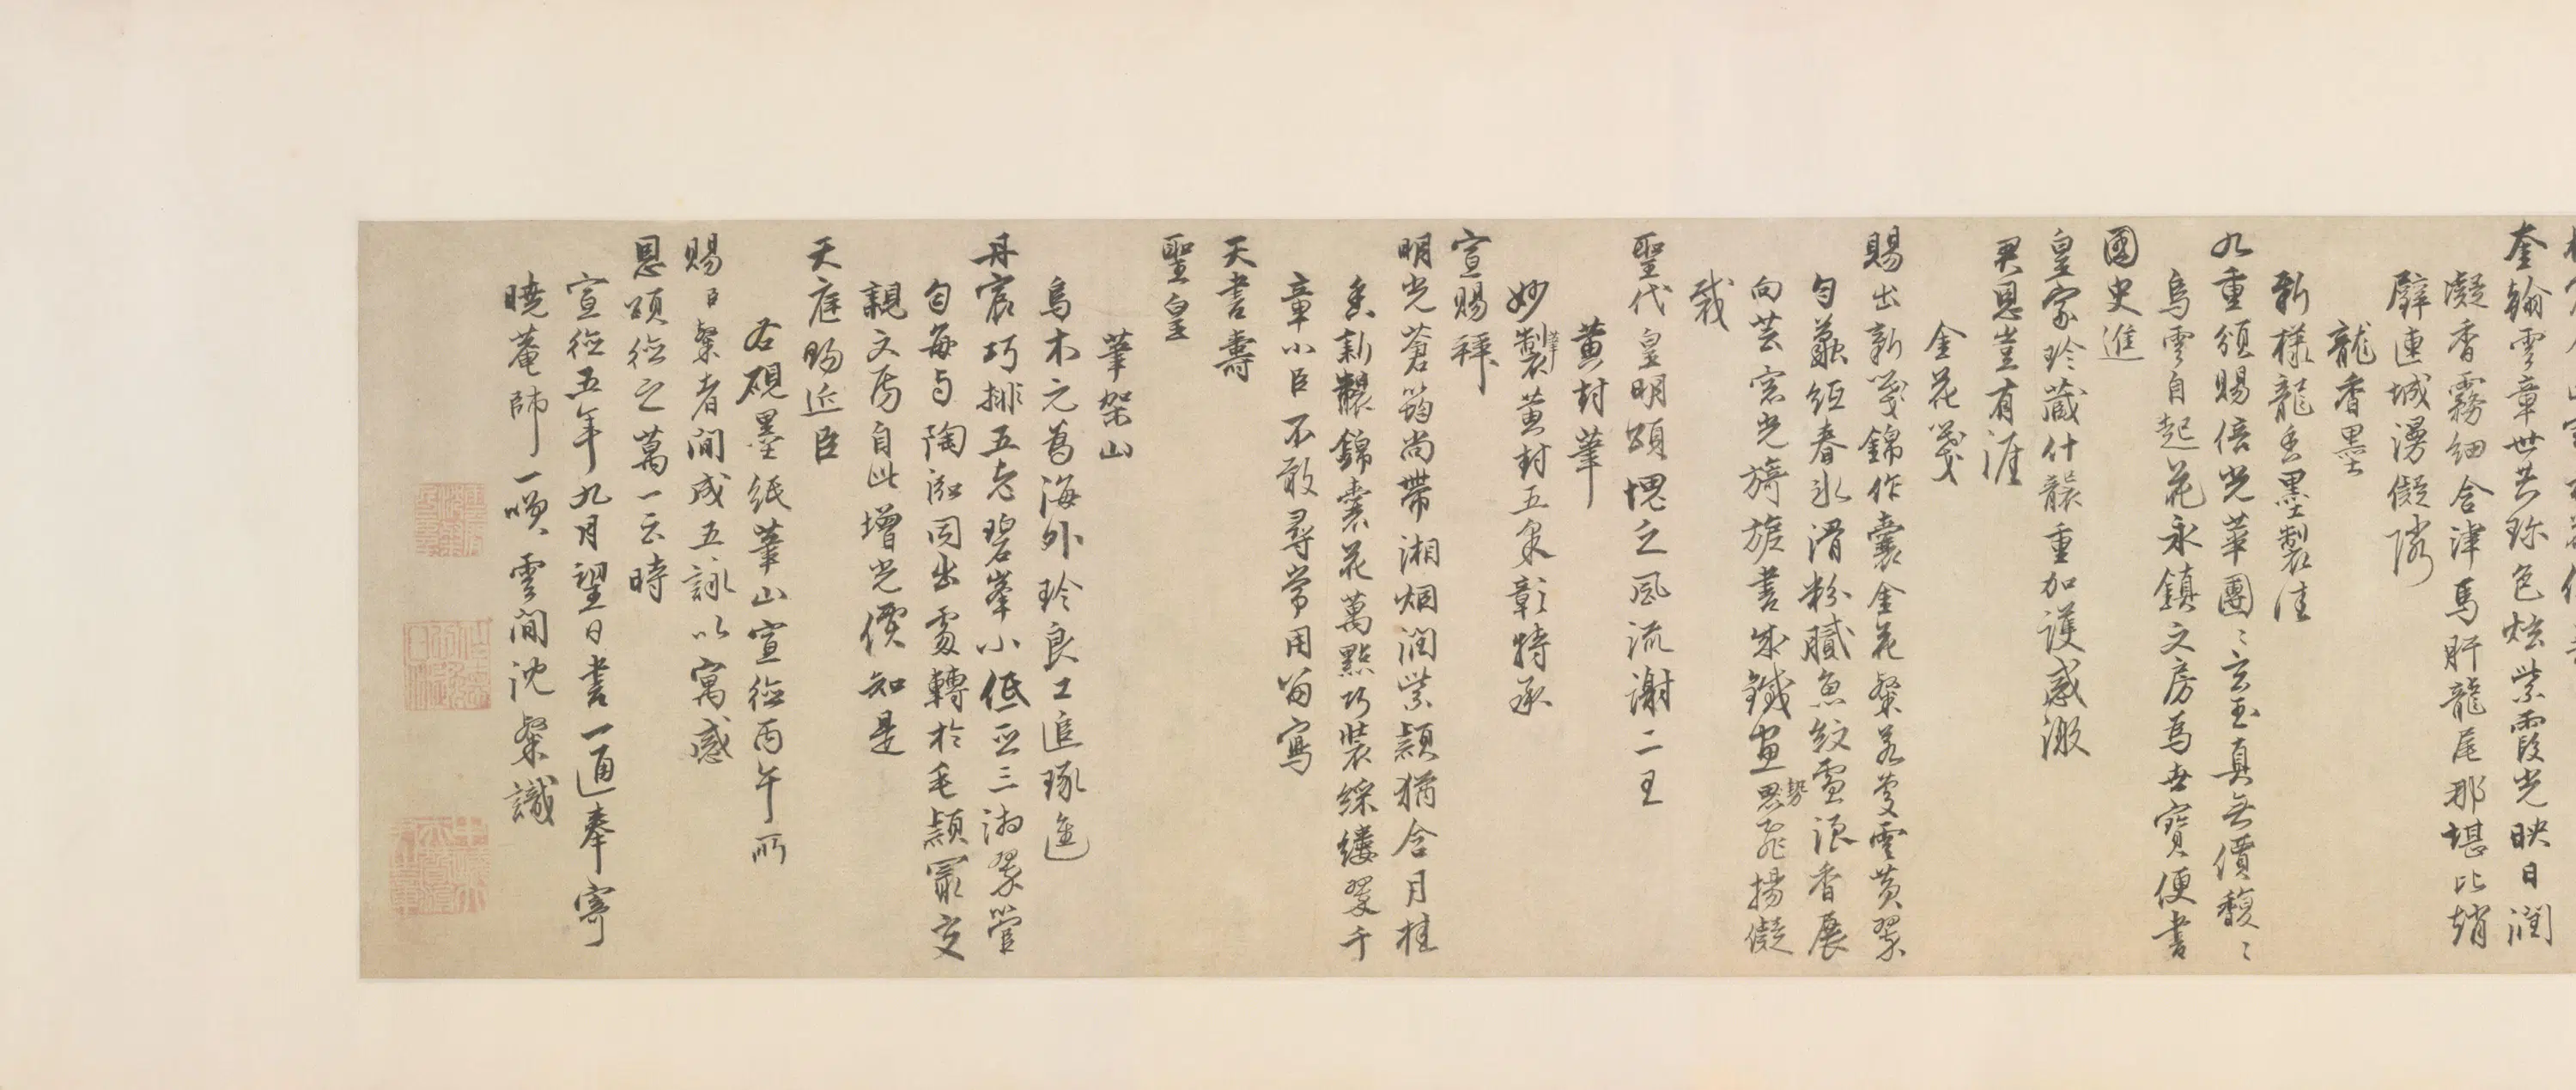 奎翰雲章世共珍色炫紫霞光映日潤
凝香霧細含津馬肝龍尾那堪比趙
璧連城漫儗隣
龍香墨
新樣龍香墨製佳
九重頒賜倍光華團〻玄玉真無價馥〻
烏雲自起花永鎮文房為世寶便書
國史進
皇家珍藏什襲重加護感激
君恩豈有涯
金花箋
賜出新箋錦作囊金花粲爛雲黃翠
勻蠶絚春冰滑粉膩魚紋雪浪香展
向芸窓光旖旎書成鐵畫勢飛揚儗
裁
聖代皇明頌愧乏風流謝二王
黃封筆
妙筆製黃封五朵彰特承
宣賜拜
明光蒼筠尚帶湘烟潤紫穎猶含月桂
香新製錦囊花萬點巧裝綵縷翠千
章小臣不敢尋常用留寫
天書壽
聖皇
筆架山
烏木元為海外珍良工追琢進
丹宸巧排五老碧峯小低亞三湘翠管
勻每与陶泓同出處轉於毛穎最交
親文房自此增光價知是
天庭賜近臣
右硯墨紙筆山宣德丙午所
賜臣粲者間成五詠以寓感
恩頌德之萬一云時
宣德五年九月望日書一通奉寄
曉菴師一噱雲間沈粲識